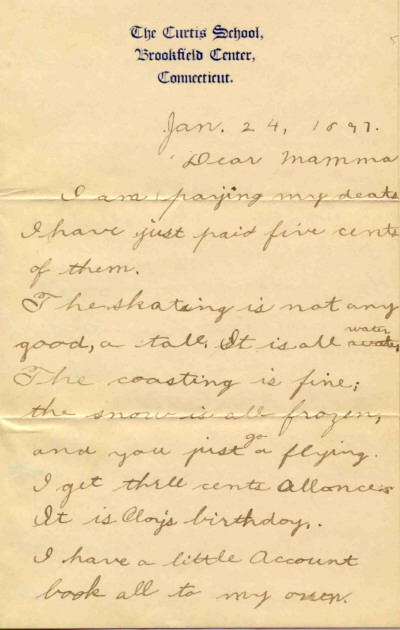 The Curtis School,
Brookfield Center,
Connecticut.
Jan. 24, 1897.
Dear Mamma
I am paying my deats
I have just paid five cents
of them.
The skating is not any
good, a tall. It is all water
The coasting is fine;
the snow is all frozen,
and you just go a flying.
I get three cents allonce.
It is birthday.
I have a little Account
book all to my own.